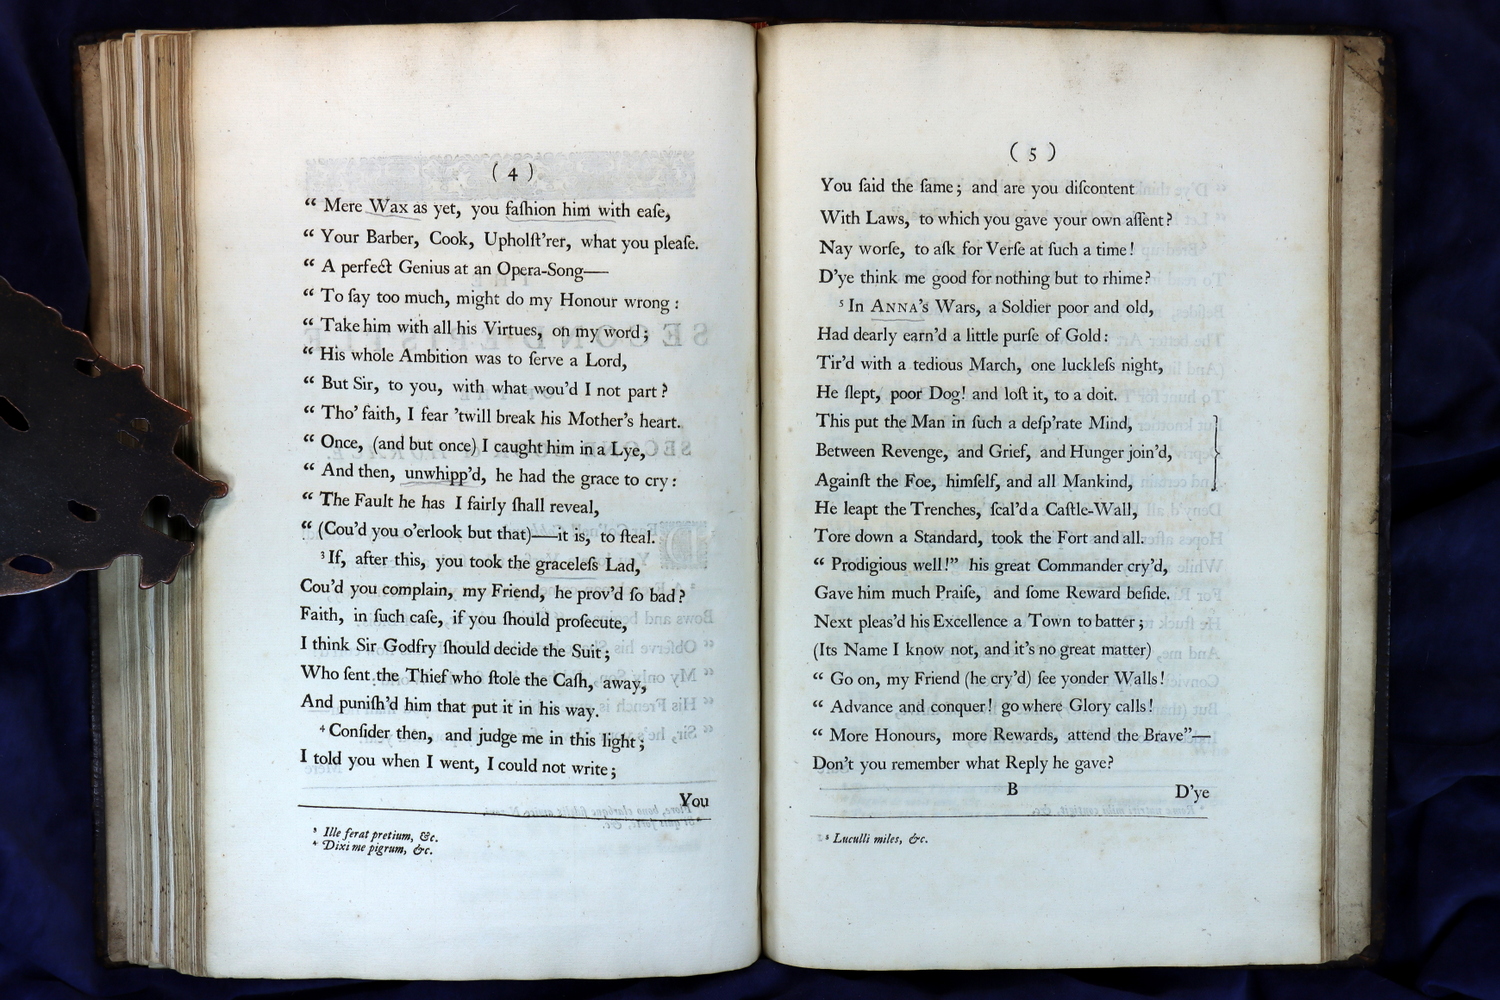 ( 4 )
“ Mere Wax as yet, you faſhion him with eaſe,
“ Your Barber, Cook, Upholſt'rer, what you pleaſe.
“ A perfect Genius at an Opera-Song——
“ To ſay too much, might do my Honour wrong :
“ Take him with all his Virtues, on my word ;
“ His whole Ambition was to ſerve a Lord,
“ But Sir, to you, with what wou'd I not part ?
“ Tho' faith, I fear 'twill break his Mother's heart.
“ Once, (and but once) I caught him in a Lye,
“ And then, unwhipp'd, he had the grace to cry :
“ The Fault he has I fairly ſhall reveal,
“ (Cou'd you o'erlook but that)——it is, to ſteal.
³ If, after this, you took the graceleſs Lad,
Cou'd you complain, my Friend, he prov'd ſo bad ?
Faith, in ſuch caſe, if you ſhould proſecute,
I think Sir Godfry ſhould decide the Suit ;
Who ſent the Thief who ſtole the Caſh, away,
And puniſh'd him that put it in his way.
⁴ Conſider then, and judge me in this light ;
I told you when I went, I could not write ;
You
³ Ille ferat pretium, &c.
⁴ Dixi me pigrum, &c.
( 5 )
You ſaid the ſame ; and are you diſcontent
With Laws, to which you gave your own aſſent ?
Nay worſe, to aſk for Verſe at ſuch a time !
D'ye think me good for nothing but to rhime ?
⁵ In ANNA's Wars, a Soldier poor and old,
Had dearly earn'd a little purſe of Gold :
Tir'd with a tedious March, one luckleſs night,
He ſlept, poor Dog! and loſt it, to a doit.
This put the Man in ſuch a deſp'rate Mind,
Between Revenge, and Grief, and Hunger join'd,
Againſt the Foe, himſelf, and all Mankind,
He leapt the Trenches, ſcal'd a Caſtle-Wall,
Tore down a Standard, took the Fort and all.
“ Prodigious well !” his great Commander cry'd,
Gave him much Praiſe, and ſome Reward beſide.
Next pleas'd his Excellence a Town to batter ;
(Its Name I know not, and it's no great matter)
“ Go on, my Friend (he cry'd) ſee yonder Walls !
“ Advance and conquer! go where Glory calls !
“ More Honours, more Rewards, attend the Brave”—
Don't you remember what Reply he gave?
B
D'ye
⁵ Luculli miles, &c.